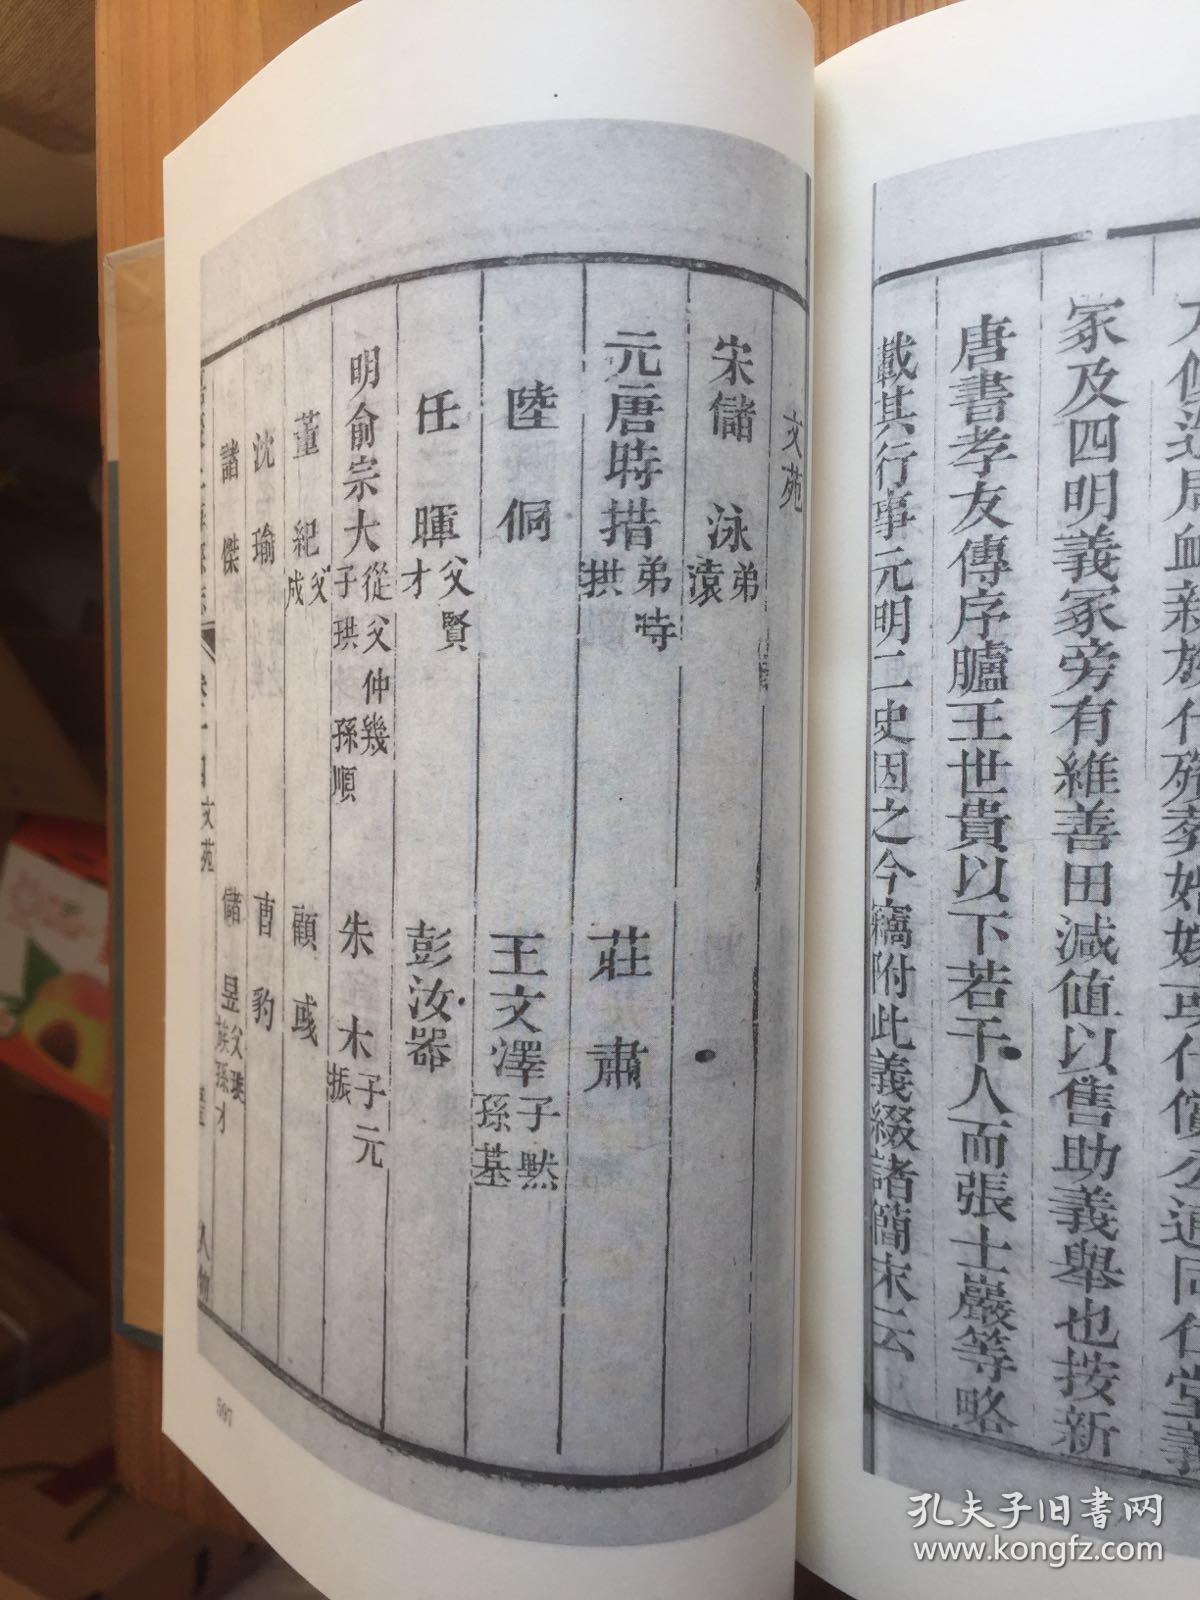 家及四明義冢旁有維善田減值以售助義舉也按新
唐書孝友傳序臚王世貴以下若干人而張士巖等略
載其行事元明二史因之今竊附此義綴諸簡末云
文苑
宋儲泳弟濲
元唐時措弟時拱 莊肅
陸侗 王文澤子黙孫基
任暉父賢才 彭汝器
明俞宗大從父仲幾子珙孫順 朱木子元振
董紀父成 顧彧
沈瑜 曹豹
諸傑 儲昱父璞族孫才
文苑
人物
507
孔夫子旧书网
www.kongfz.com